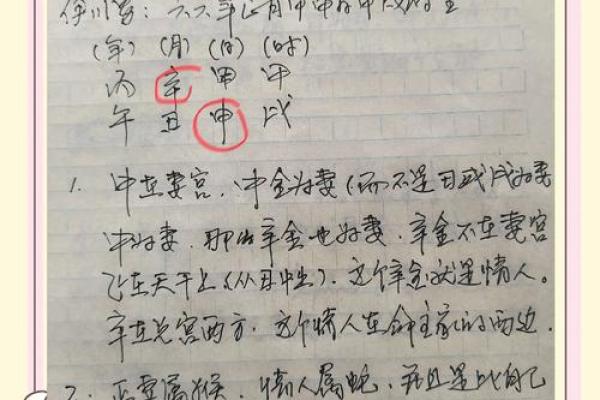 (年) (月) (日) (时)
丙 辛 甲 甲
午 丑 申 戌
1. 申在妻宫，申金为妻(而不是丑或戌为妻
申为妻，那么辛金也为妻，辛金不在妻宫
飞在天干上(从丑中出)，这个辛金就是情人。
辛在兑宫西方，这个情人在命主家的西边.
2. 正妻属猴，情人属蛇，并且是比自己